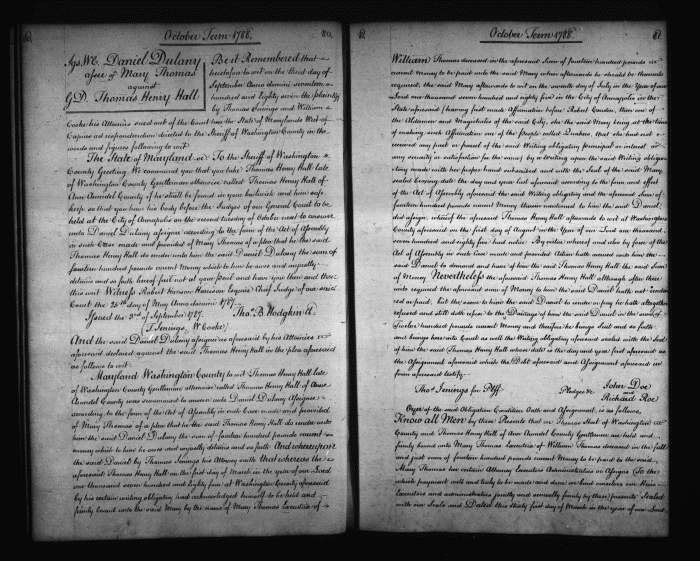 October Term 1788.
80.
Daniel Dulany
assee of Mary Thomas
against
Thomas Henry Hall
Be it Remembered that
heretofore to wit on the third day of
September Anno domini seventeen
hundred and Eighty seven the plaintiff
by Thomas Jenings and William
Cooke his Attornies sued out of the Court here the State of Marylands Writ of
Capias ad respondendum directed to the Sheriff of Washington County in the
words and figures following to wit
The State of Maryland To the Sheriff of Washington
County Greeting We command you that you take Thomas Henry Hall late
of Washington County Gentleman otherwise called Thomas Henry Hall of
Ann Arundel County if he shall be found in your bailiwick and him safe
keep so that you have his body before the Judges of our General Court to be
held at the City of Annapolis on the second tuesday of October next to answer
unto Daniel Dulany assignee according to the form of the Act of Assembly
in such Case made and provided of Mary Thomas of a plea that he the said
Thomas Henry Hall do render unto him the said Daniel Dulany the sum of
fourteen hundred pounds current money which to him he owes and unjustly
detains and so forth hereof fail not at your peril and have you then and there
this writ Witness Robert Hanson Harrison Esquire Chief Judge of our said
Court the 25th day of May Anno domini 1787.
Issued the 3rd of September 1787. Thos. B. Hodgkin
(T Jenings W Cooke)
And the said Daniel Dulany assignee as aforesaid by his Attornies
aforesaid declared against the said Thomas Henry Hall in the plea aforesaid
as follows to wit
Maryland Washington County to wit Thomas Henry Hall late
of Washington County Gentleman otherwise called Thomas Henry Hall of Ann
Arundel County was summoned to answer unto Daniel Dulany Assignee
according to the form of the Act of Assembly in such Case made and provided
of Mary Thomas of a plea that he the said Thomas Henry Hall do render unto
him the said Daniel Dulany the sum of fourteen hundred pounds current
money which to him he owes and unjustly detains and so forth And whereupon
the said Daniel by Thomas Jenings his Attorney saith that whereas the
aforesaid Thomas Henry Hall on the first day of March in the year of our Lord
one thousand seven hundred and Eighty four at Washington County aforesaid
by his certain writing obligatory had acknowledged himself to be held and
firmly bound unto the said Mary by the name of Mary Thomas Executrix of
October Term 1788
81
William Thomas deceased in the aforesaid Sum of fourteen hundred pounds
current money to be paid unto the said Mary when afterwards he should be thereunto
required, the said Mary afterwards to wit on the day of July in the Year of our
Lord one thousand seven hundred and eighty five in the City of Annapolis in the
State aforesaid (having first made Affirmation before Robert Couden, then one of
the Aldermen and Magistrates of the said City, she the said Mary being at the time
of making such Affirmation one of the people called Quakers, that she had not
received any part or parcel of the said Writing obligatory principal or interest or
any security or satisfaction for the same) by a Writing upon the said Writing obliga-
tory made with her proper hand subscribed and with the Seal of the said Mary
sealed bearing date the day and year last aforesaid according to the form and effect
of the Act of Assembly aforesaid the said Writing obligatory and the aforesaid Sum of
fourteen hundred pounds current Money therein mentioned to him the said Daniel
did assign, whereof the aforesaid Thomas Henry Hall afterwards to wit at Washington
County aforesaid on the first day of August in the Year of our Lord one thousand
seven hundred and eighty five had notice. By virtue whereof and also by force of the
Act of Assembly in such Case made and provided Action hath accrued unto him the
said Daniel to demand and have of him the said Thomas Henry Hall the said Sum
of Money Nevertheless the aforesaid Thomas Henry Hall although often there-
unto required the aforesaid sum of Money to him the said Daniel hath not render-
ed or paid, but the same to him the said Daniel to render or pay he hath altogether
refused and still doth refuse to the Damage of him the said Daniel in the sum of
Twelve hundred pounds current Money and therefore he brings Suit and so forth
and brings here into Court as well the Writing obligatory aforesaid sealed with the Seal
of him the said Thomas Henry Hall whose date is the day and year first aforesaid as
the Assignment aforesaid which the Debt aforesaid and Assignment aforesaid in
form aforesaid testify.
Thos. Jenings for Plff. Pledges &c John Doe
and
Richard Roe
Copy of the said Obligation Condition Oath and Assignment, is as follows,
Know all Men by these Presents that we Thomas Hall of Washington
County and Thomas Henry Hall of Ann Arundel County Gentlemen are held and
firmly bound unto Mary Thomas Executrix of William Thomas deceased in the full
and just sum of fourteen hundred pounds current Money to be paid to the said
Mary Thomas her certain Attorney Executors Administrators or Assigns (To the
which payment well and truly to be made and done we bind ourselves our Heirs
Executors and administrators jointly and severally firmly by these presents Sealed
with our Seals and Dated this thirty first day of March in the year of our Lord